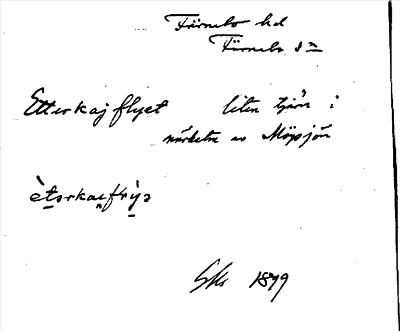 Färnebo hd
Färnebo sn
Etterkajflyet liten tjärn i
närheten av Möpsjön
ètərkaɟflỳə
1879